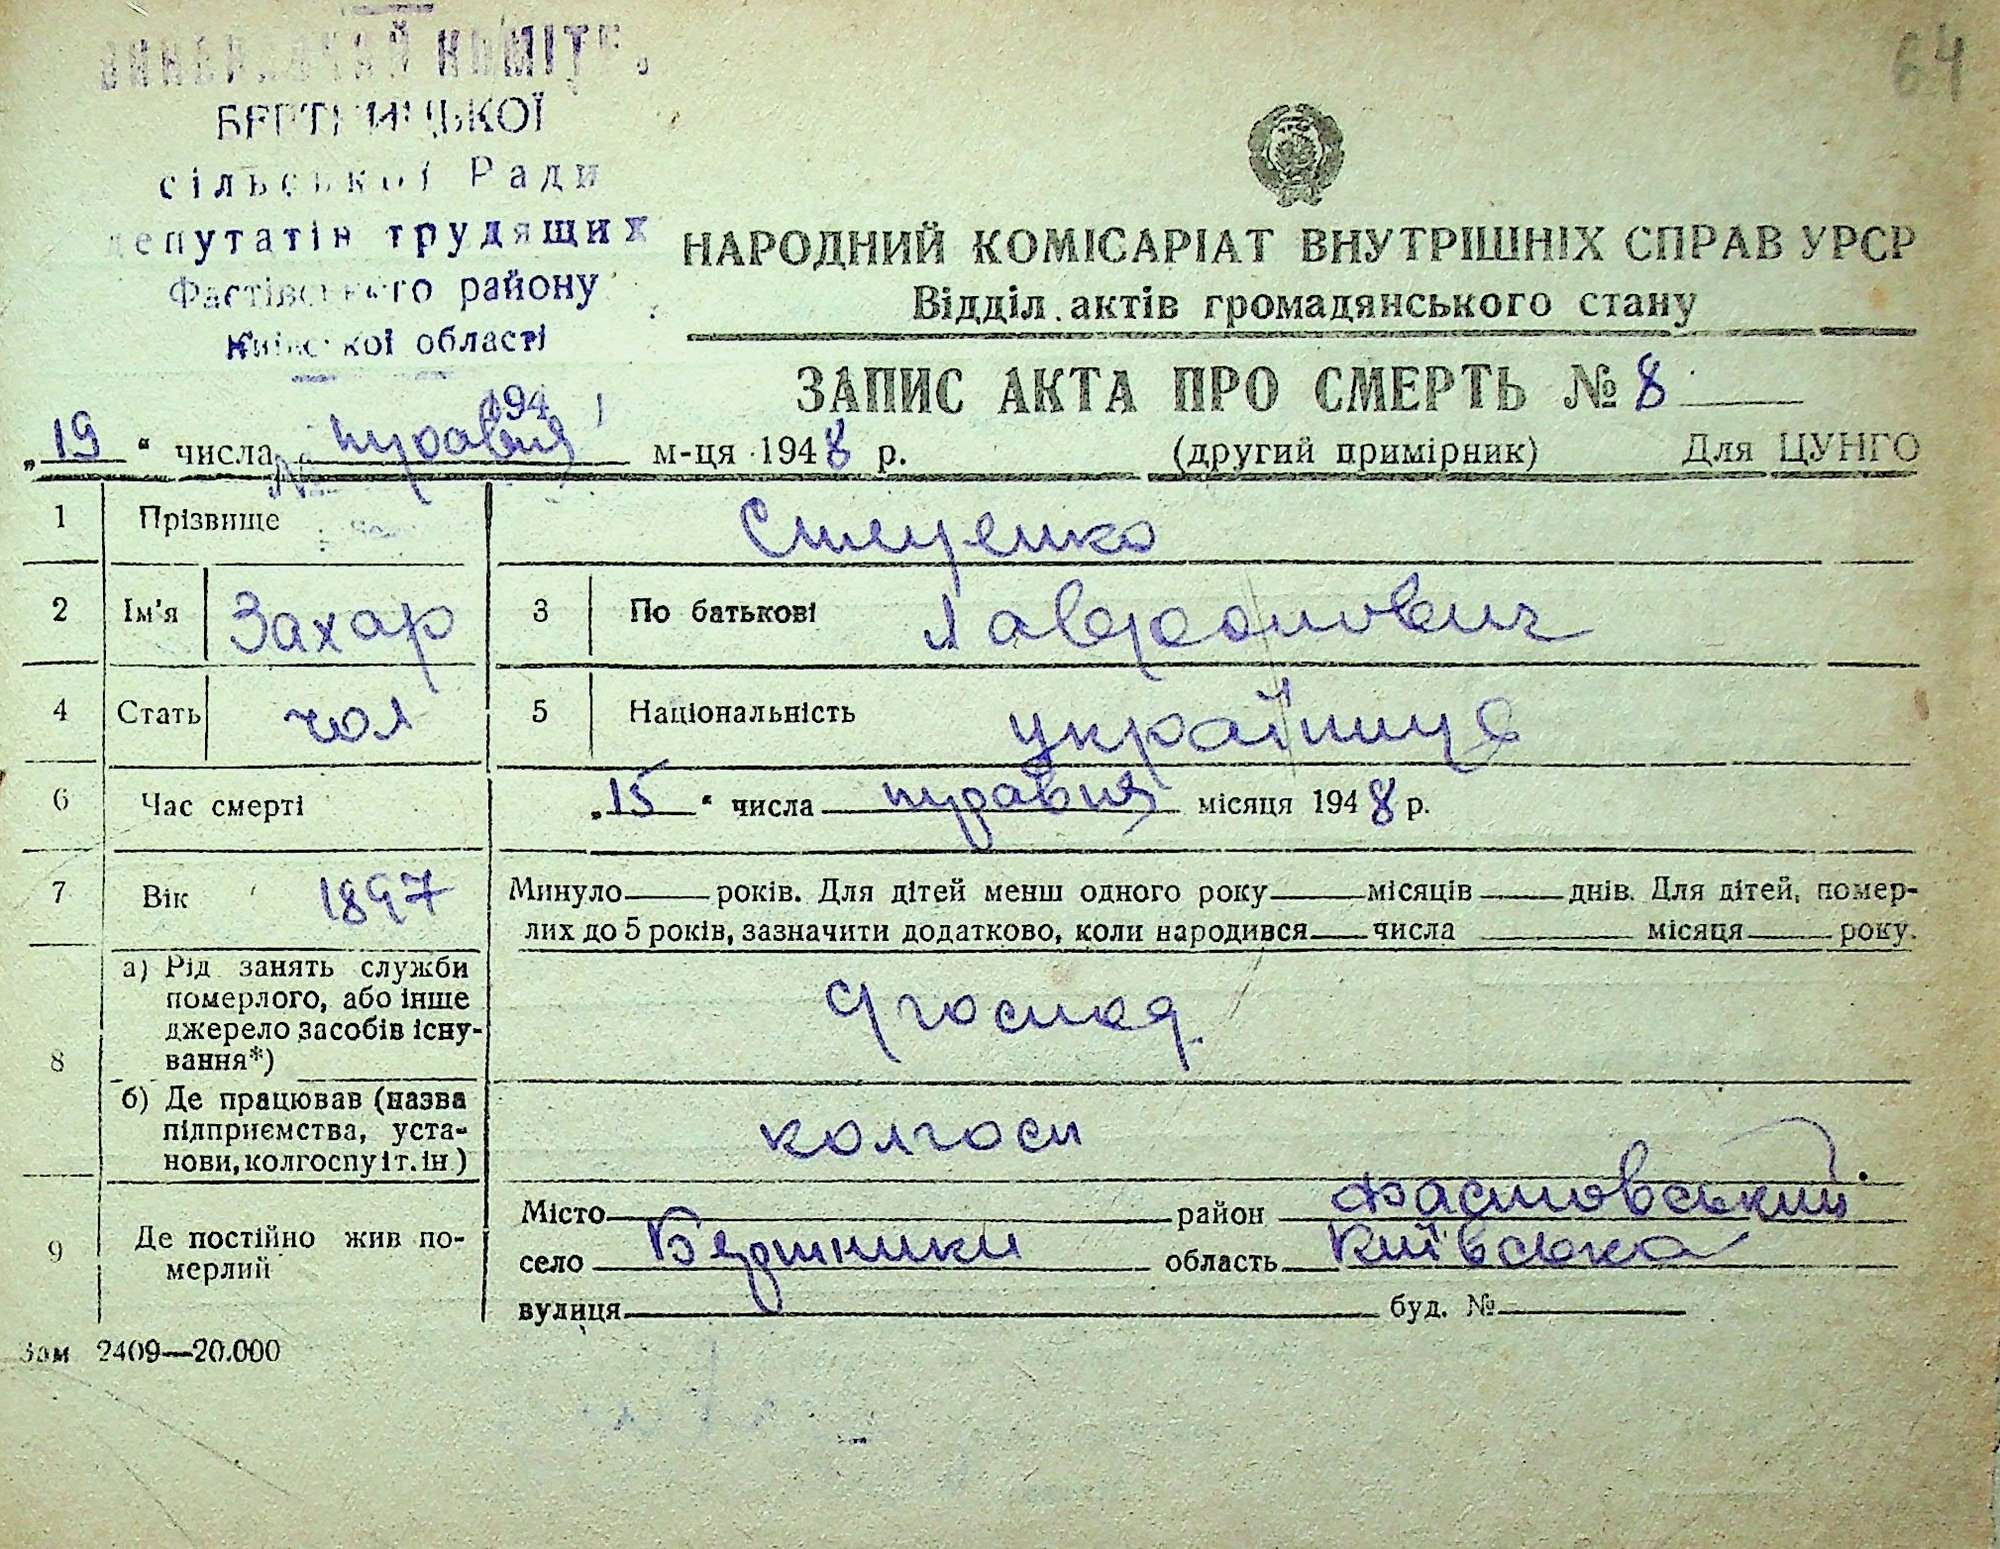 64
ВИКОНАВЧИЙ КОМІТЕТ
БЕРТНИЦЬКОЇ
сільської Ради
депутатів трудящих
Фастівського району
Київської області
194
НАРОДНИЙ КОМІСАРІАТ ВНУТРІШНІХ СПРАВ УРСР
Відділ актів громадянського стану
ЗАПИС АКТА ПРО СМЕРТЬ № 8
„19“ числа травня м-ця 1948 р. (другий примірник) Для ЦУНГО
1 Прізвище
2 Ім'я Захар 3 По батькові
4 Стать чол 5 Національність
6 Час смерті „15“ числа травня місяця 1948 р.
7 Вік 1897 Минуло років. Для дітей менш одного року місяців днів. Для дітей, помер-
лих до 5 років, зазначити додатково, коли народився числа місяця року.
8 а) Рід занять служби
померлого, або інше
джерело засобів існу-
вання*)
б) Де працював (назва
підприємства, уста-
нови, колгоспу і т. ін)
колгосп
9 Де постійно жив по-
мерлий
Місто район Фастовський
село область Київська
вулиця буд. №
Зам 2409—20.000